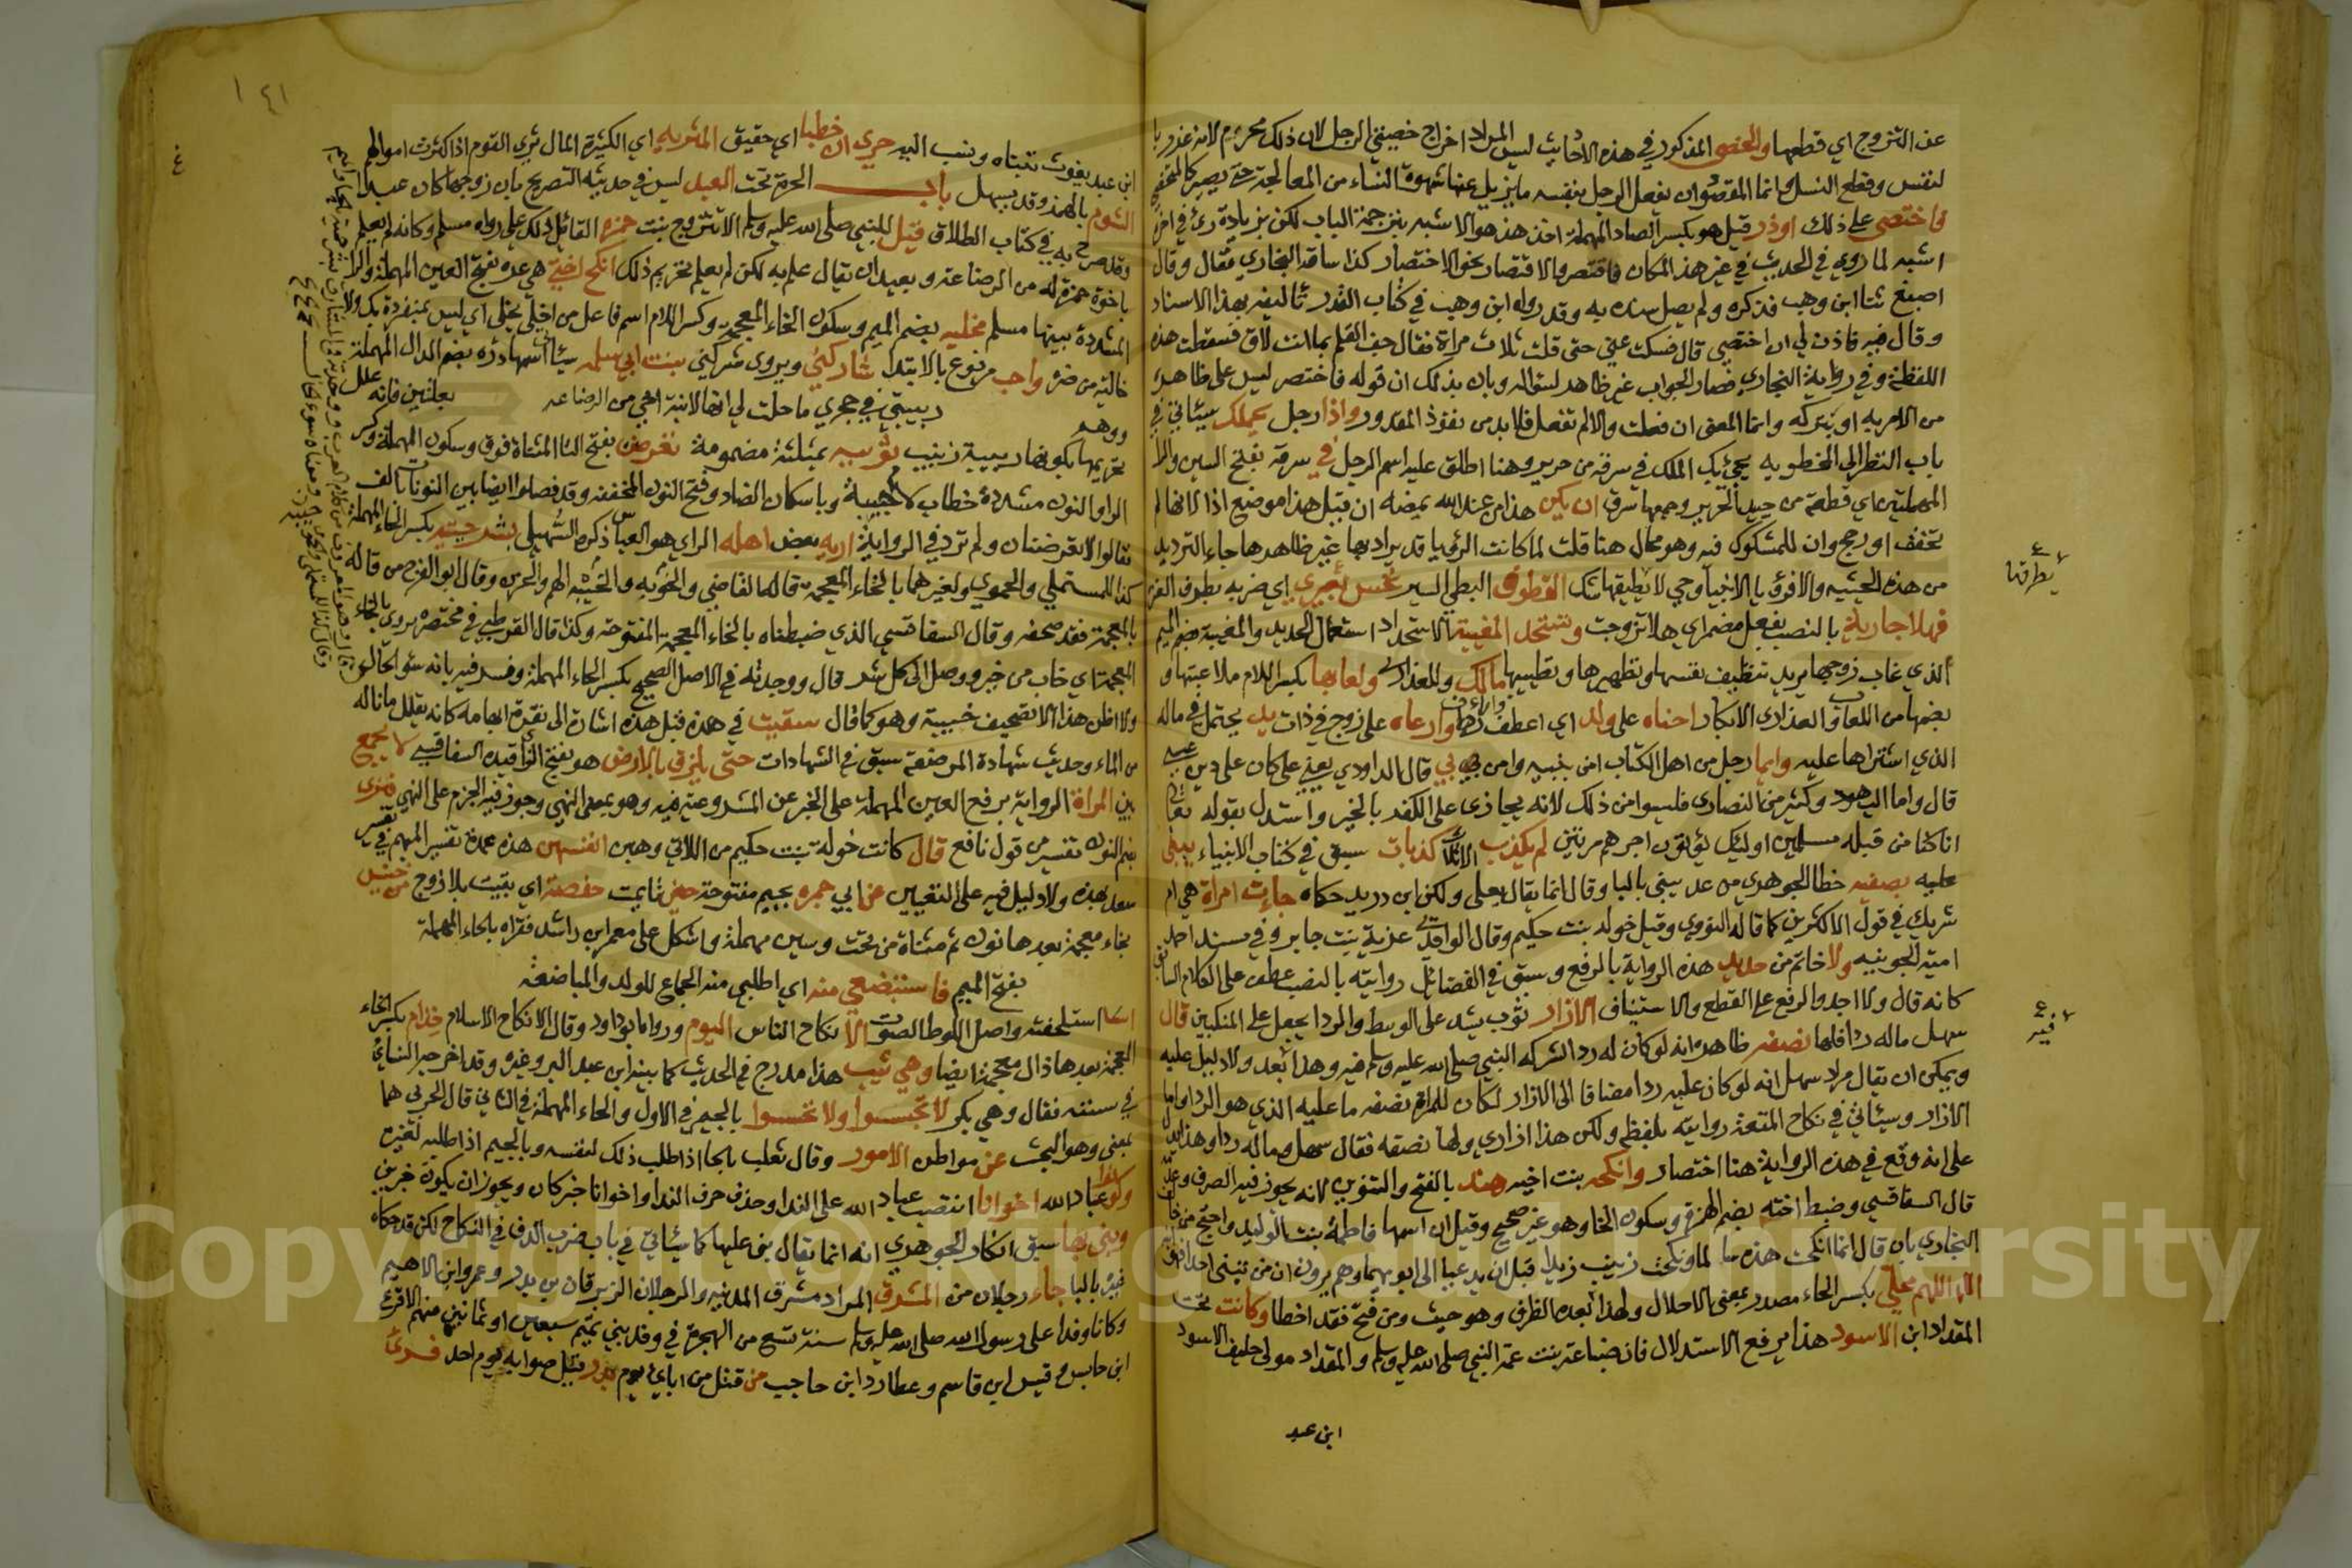 عن التزوج اي قطعها والخصى المذكور في هذه الاحاديث ليس المراد اخراج خصيتي الرجل لان ذلك محرم لانه غدر با
لنفس وقطع النسل وانما المقصود ان يفعل الرجل بنفسه ما يزيل عنها شهوة النساء من المعالجة حتى يصير كالمختصي
فاختصي على ذلك اوذر قيل هو بكسر الصاد المهملة اخذ هذ هو الاشبه بترجمة الباب لكن بزيادة روي في اخر
اشبه لما روي في الحديث في غير هذ المكان فاقتصر والاقتصار نحو الاختصار كذا ساقه البخاري فقال وقال
اصبغ ثنا ابن وهب فذكره ولم يصل سنده به وقد رواه ابن وهب في كتاب القدر تاليفه بهذا الاسناد
وقال فيه فاذن لي ان اختصي قال فسكت عني حتى قلت ثلاث مراة فقال جف القلم بما انت لاق فسقطت هذه
اللفظة وفي رواية البخاري فصار الجواب غير ظاهر لسواله وبان بذلك ان قوله فاختصر ليس على ظاهره
من الامر به او بتركه وانما المعنى ان فعلت والا لم تفعل فلا بد من نفوذ المقدور واذا رجل يحملك سيئاتي في
باب النظر الى المخطوبه يجئ بك الملك في سرقة من حرير وهنا اطلق عليه اسم الرجل في سرقة بفتح السين والرا
المهملتين اي قطعة من جيد الحرير وجمعها سرق ان يكن هذا من عند الله يمضه ان قيل هذا موضع اذا لانها لم
تحقق او رجح وان للمشكوك فيه وهو محال هنا قلت لما كانت الرؤيا قد يراد بها غير ظاهرها جاء الترديد
من هذه الحيثيه والا فرؤيا الانبيا وحي لا يطيقها شك القطوف البطي السير نخس بعيري اي ضربه بطرف العنز
فهلا جارية بالنصب بفعل مضمر اي هلا تزوجت وتستحد المغيبة الاستحداد استعمال الحديد والمغيبة بضم الميم
الذي غاب زوجها يريد تنظيف نفسها وتطهيرها وتطييبها مالك وللعذاري ولعابها بكسر اللام ملاعبتها و
بضمها من اللعاب والعذاري الابكار احناه على ولد اي اعطف وارعاه على زوج في ذات يد يحتمل في ماله
الذي اشتراها عليه وايما رجل من اهل الكتاب امن بنبيه وامن بي قال الداودي يعني على كان على دين عيسى
قال واما اليهود وكثير من النصارى فليسوا من ذلك لانه يجازى على الكفر بالخير واستدل بقوله تعالى
انا كنا من قبله مسلمين اولئك يؤتون اجرهم مرتين لم يكذب الا ثلاث كذبات سبق في كتاب الانبياء يبنى
عليه بصفيه خطا الجوهري من عد يبني بالبا وقال انما يقال يعلى ولكن ابن دريد حكاه جاءت امراة هي ام
شريك في قول الاكثرين كما قاله النووي وقيل خوله بنت حكيم وقال الواقدي عزية بنت جابر وفي مسند احمد
امية الجوينيه ولا خاتم من حديد هذه الرواية بالرفع وسبق في الفضائل روايته بالنصب عطف على الكلام السابق
كانه قال ولا اجد والرفع على القطع والاستيناف الازار ثوب يشد على الوسط والردا يجعل على المنكبين قال
سهل ماله ردا فلها نصفه ظاهره انه لو كان له ردا لشركه النبي صلى الله عليه وسلم فيه وهذا بعد ولا دليل عليه
ويمكن ان يقال مراد سهل انه لو كان عليه ردا مضافا الى الازار لكان للمراة نصفه ما عليه الذي هو الردا واما
الازار وسيئاتي في نكاح المتعة روايته بلفظ ولكن هذا ازاري ولها نصفه فقال سهل وماله ردا وهذا يدل
على انه وقع في هذه الرواية هنا اختصار وانكحه بنت اخيه هند بالفتح والتنوين لانه يجوز فيه الصرف وعدمه
قال السفاقسي وضبط اخته بضم الهمزة وسكون الخا وهو غير صحيح وقيل ان اسمها فاطمة بنت الوليد واحتج
البخاري بان قال انما انكحت هذه ما لما ونكحت زينب زيدا قبل ان يدعيا الى ابويهما وهم يرون ان من تبنى احدا
اللهم محلي بكسر الحاء مصدر بمعنى الاحلال ولهذا بعده الظرف وهو حيث ومن فتح فقد اخطا وكانت تحت
المقداد ابن الاسود هذا يرفع الاستدلال فان ضباعة بنت عمة النبي صلى الله عليه وسلم والمقداد مولى حليف الاسود
ابن عبد
يطرقها
فيه
١٤١
ابن عبد يغوث تبناه ونسب اليه حري ان خطبا اي حقيق المثريه اي الكثيرة المال ثري القوم اذا كثرت اموالهم
الشوم بالهمز وقد يسهل باب الحرة تحت العبد ليس في حديثه التصريح بان زوجها كان عبدا
وقد صرح به في كتاب الطلاق قيل للنبي صلى الله عليه وسلم الا تتزوج بنت حمزه القائل ذلك علي رواه مسلم وكانه لم يعلم
باخوة حمزة له من الرضاعة وبعيد ان يقال علم به لكن لم يعلم تحريم ذلك انكح اختي هي عزه بفتح العين المهملة والزا
المشددة بينها مسلم مخليه بضم الميم وسكون الخاء المعجمة وكسر اللام اسم فاعل من اخلى يخلي اي ليس بمنفردة بك ولا
خالية من ضرة واحب مرفوع بالابتدا شاركني ويروى شركني بنت ابي سلمه سيئاتي اسمها دره بضم الدال المهملة
ووهم ربيبتي في حجري ما حلت لي انها لابنة اخي من الرضاعه يعلتين فانه علل
تحريمها بكونها ربيبة زينب ثويبه بمثلثة مضمومة تعرضن بفتح التا المثناة فوق وسكون المهملة وكسر
الراو النون مشددة خطاب لام حبيبة وباسكان الضاد وفتح النون المخففه وقد فصلوا ايضا بين النونات بالف
فقالوا لا تعرضنان ولم ترد في الرواية اريه بعض اهله الراي هو العباس ذكره السهيلي بشر حيبه بكسر الحاء المهملة
كذا للمستملي والحموي ولغيرهما بالخاء المعجمة قاله القاضي والحوبه والحيبه الهم والحزن وقال ابو الفرج من قاله
بالمعجمة فقد صحفه وقال السفاقسي الذي ضبطناه بالخاء المعجمة المفتوحة وكذا قال القرطبي في مختصره يروى بالخاء
المعجمة اي خاب من خير ووصل الى كل شر قال ووجدته في الاصل الصحيح بكسر الحاء المهملة وفسر فيه بانه سو الحال
ولا اظن هذا الا تصحيف خيبة وهو كما قال سقيت في هذة قيل هذه اشارة الى نقرة ابهامه كانه يقلل ما ناله
من الماء وحديث شهادة المرضعة سبق في الشهادات حتى يلزق بالارض هو بفتح الزا قيده السفاقسي لا يجمع
بين المراة الرواية برفع العين المهملة على الخبر عن المشروعية فيه وهو بمعنى النهي وجوز فيه الجزم على النهي فنرى
بضم النون تفسير من قول نافع قال كانت خولة بنت حكيم من اللاتي وهبن انفسهن هذه عمدة تفسير المبهم في تفسير
بعد بهذه ولا دليل فيه على التعيين عن ابي جمره بجيم مفتوحة حين تايمت حفصة اي بقيت بلا زوج من خنيس
بخاء معجمة بعدها نون ثم مثناة من تحت وسين مهملة واشكل على معمر ابن راشد فقراه بالحاء المهملة
بفتح الميم فاستبضعي منه اي اطلبي منه الجماع للولد والمباضعه
استلحقته واصل اللوط الصوت الا نكاح الناس اليوم ورواه ابو داود وقال الا نكاح الاسلام خذام بكسر الخاء
المعجمة بعدها ذال معجمة ايضا وهي ثيب هذا مدرج في الحديث كما بينه ابن عبد البر وغيره وقد اخرجه النسائي
في سننه فقال وهي بكر لا تجسسوا ولا تحسسوا بالجيم في الاول والحاء المهملة في الثاني قال الحربي هما
بمعنى وهو البحث عن مواطن الامور وقال ثعلب بالحا اذا طلب ذلك لنفسه وبالجيم اذا طلبه لغيره
وكونوا عباد الله اخوانا انتصب عباد الله على الندا وحذف حرف الندا واخوانا خبر كان ويجوز ان يكون خبرين
وبنى بها سبق انكار الجوهري انه انما يقال بنى عليها كما سيئاتي في باب ضرب الدف في النكاح لكن قد حكاه
غيره بالبا جاء رجلان من المشرق المراد مشرق المدينه والرجلان الزبرقان بن بدر وعمرو ابن الاهيم
وكانا وفدا على رسول الله صلى الله عليه وسلم سنة تسع من الهجرة في وفد بني تميم سبعين او ثمانين منهم الاقرع
ابن حابس وقيس ابن قاسم وعطارد ابن حاجب من قتل من اباي يوم بدر قيل صوابه يوم احد فرئ